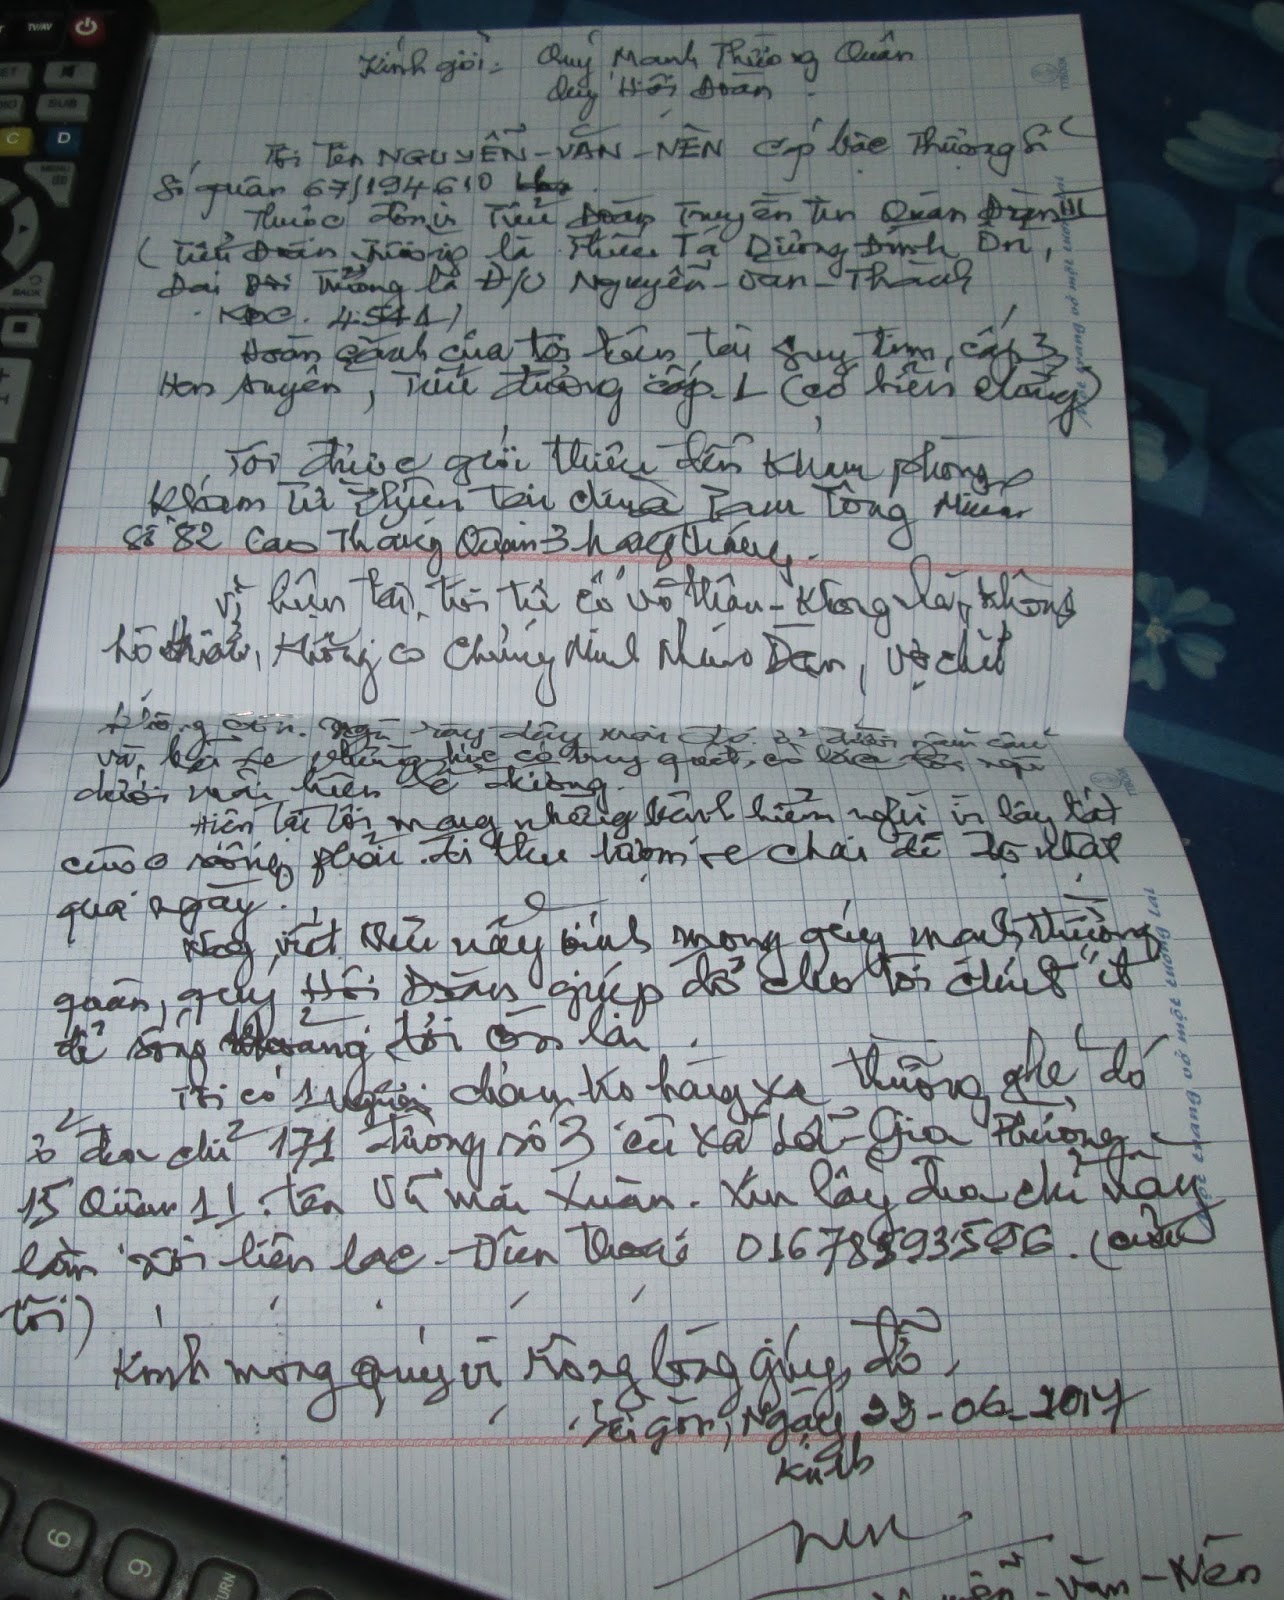 Kính gởi: Quý Mạnh Thường Quân
Quý Hội Đoàn.
Tôi Tên NGUYỄN-VĂN-NÊN Cấp bậc Thượng Sĩ
Số quân 67/194610
Thuộc đơn vị Tiểu Đoàn Truyền tin Quân Đoàn III
(Tiểu Đoàn Trưởng là Thiếu Tá Dương Đình
Đại Đội Trưởng là Đ/U Nguyễn-Văn-Thành
KBC. 4541)
Hoàn cảnh của tôi hiện tại suy tim, cấp 3,
Hen suyễn, Tiểu đường cấp 1 (có biến chứng)
Tôi được giới thiệu đến Khám phòng
khám Từ Thiện tại chùa Tam Tông Miếu
Số 82 Cao Thắng Quận 3 hàng tháng.
Vì hiện tại, tôi tứ cố vô thân - Không nhà, không
hộ khẩu, không có Chứng Minh Nhân Dân, vợ chết
không con. ngủ đây
và, bến xe
dưới mái hiên lề đường.
Hiện tại tôi mang những bệnh hiểm nghèo vì
cuộc sống phải đi lượm ve chai để
qua ngày.
Nay viết thư này kính mong quý mạnh thường
quân, quý Hội Đoàn giúp đỡ cho tôi chút ít
để sống khoảng đời còn lại.
Tôi có 1 người cháu ko bà xa thường ghé đó
ở địa chỉ 171 đường số 3 cư xá Lữ-Gia Phường
15 Quận 11. tên Vũ mai Xuân. Xin lấy địa chỉ này
làm nơi liên lạc. Điện thoại 01678593596. (của
tôi)
Kính mong quý vị rộng lòng giúp đỡ.
Sài gòn, Ngày 22-06-2017
Kính
Nguyễn-Văn-Nên
TV/AV
SUB
C
D
MENU
BACK
TIBOOK
Một trang vở một tương lai
TIBOOK
Một trang vở một tương lai
6
9